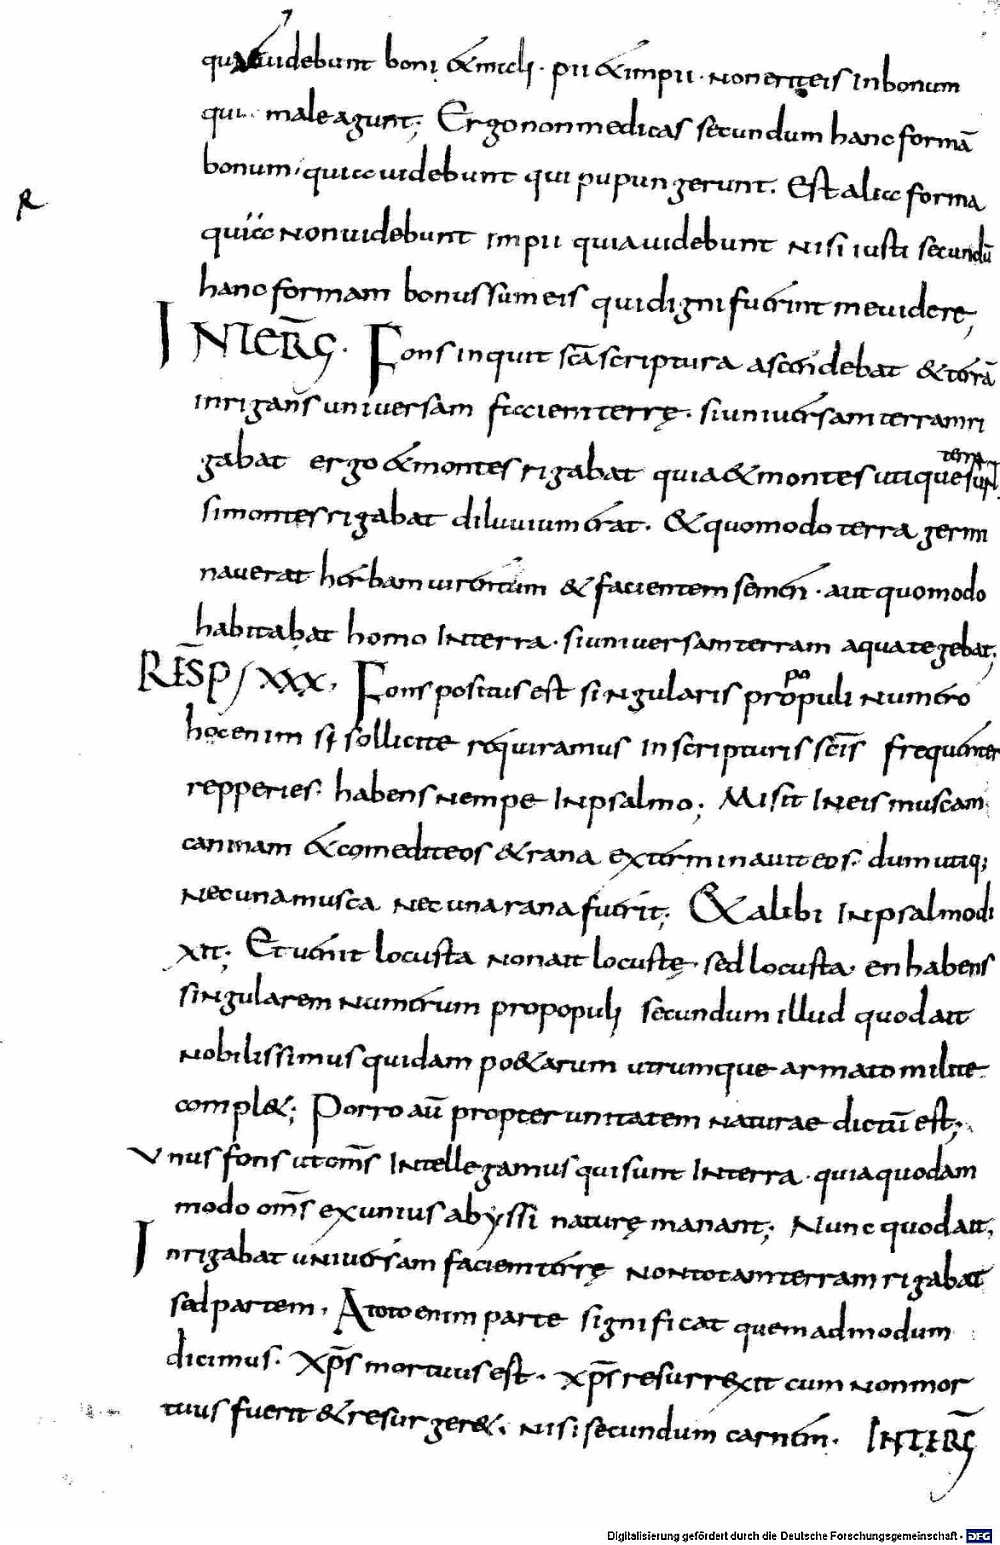 quia uidebunt boni &mali · pii &impii · non erit eis inbonum
qui male agunt; Ergo non me dicas secundum hanc formā
bonum, quia uidebunt qui pupungerunt. Est alia forma
quia non uidebunt impii quia uidebunt nisi iusti secundū
hanc formam bonus sum eis qui digni fuerint me uidere;
INTERG̅. Fons inquit sc̄a scriptura ascendebat & terrā
inrigans uniuersam faciem terrę. si uniuersam terram ri
gabat ergo &montes rigabat quia &montes utique terra sunt
si montes rigabat diluuium erat. & quomodo terra germi
nauerat herbam uirentum & facientem semen · aut quomodo
habitabat homo in terra · si uniuersam terram aqua tegebat;
RESP̅ XXX. Fons positus est singularis pro populi numero
hoc enim si sollicite requiramus in scripturis sc̄is frequenter
repperies. habens nempe in psalmo; Misit in eis muscam
caninam &comedit eos &rana exterminauit eos. dum utiq;
nec una musca nec una rana fuerit; &alibi in psalmo di
xit; Et uenit locusta non ait locustę. sed locusta. en habens
singularem numerum pro populi secundum illud quod ait
nobilissimus quidam po&arum utrumque armato milite
compl&; Porro aū propter unitatem naturae dictū est;
Vnus fons ut om̄s intellegamus qui sunt in terra · quia quodam
modo om̄s ex unius abyssi naturę manant; Nunc quod ait;
Inrigabat uniuersam faciem terrę non totam terram rigabat
sed partem. A toto enim parte significat quemadmodum
dicimus. xp̄s mortuus est. xp̄s resurrexit cum non mor
tuus fuerit &resurger&. nisi secundum carnem. INTERG̅
Digitalisierung gefördert durch die Deutsche Forschungsgemeinschaft - DFG